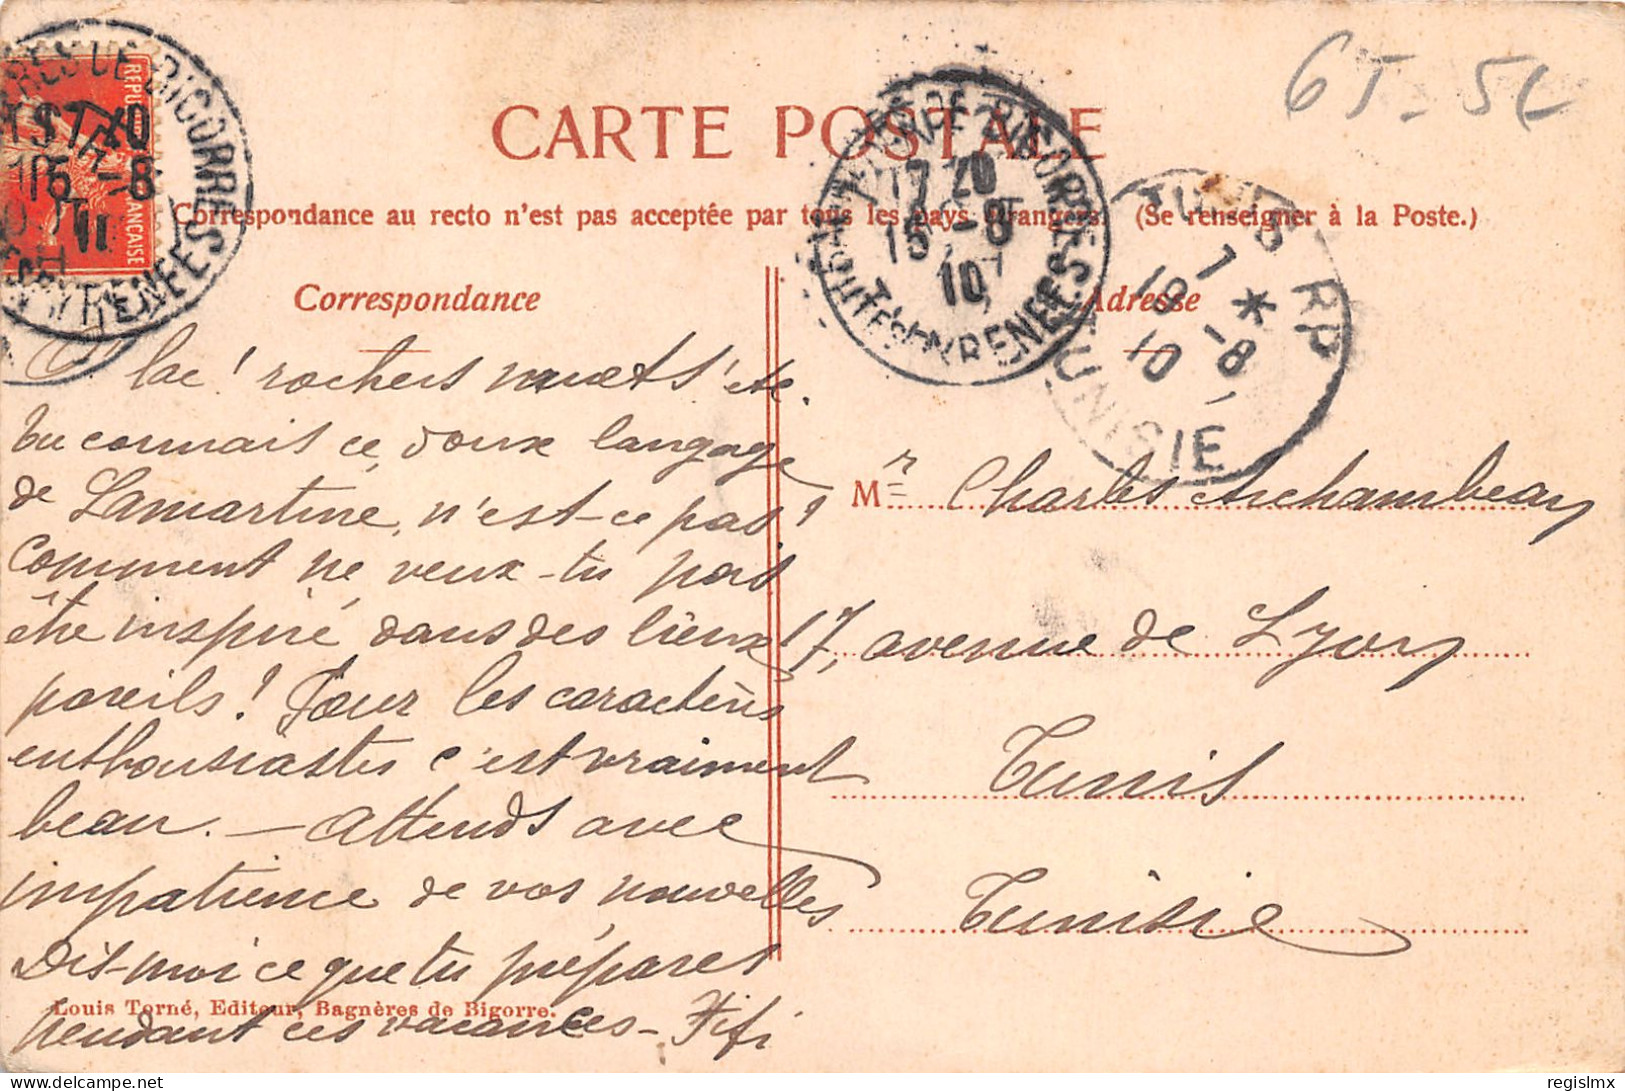 65-5C
CARTE POSTALE
Correspondance au recto n'est pas acceptée par tous les pays étrangers (Se renseigner à la Poste.)
RÉPU
FRANÇAISE
BIGORRE
PYRENEES
17 20
15 -8
10
BIGORRE
HAUTES PYRENEES
TUNIS RP
7 *
18 -8
10
TUNISIE
Correspondance
O lac! rochers muets! etc.
tu connais ce doux langage
de Lamartine, n'est-ce pas!
comment ne veux-tu pas
être inspiré dans des lieux
pareils! Pour les caractères
enthousiastes c'est vraiment
beau. — Attends avec
impatience de vos nouvelles
Dis-moi ce que tu prépares
pendant ces vacances - Fifi
Adresse
Mr Charles Archambeau
17, avenue de Lyon
Tunis
Tunisie
Louis Torné, Editeur, Bagnères de Bigorre.
delcampe.net
regislmx